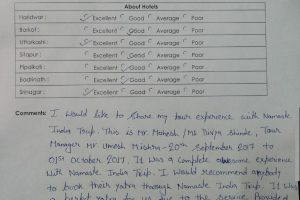 About Hotels
Haridwar : Excellent Good Average Poor
Barkot : Excellent Good Average Poor
Uttarkashi : Excellent Good Average Poor
Sitapur : Excellent Good Average Poor
Pipalkoti : Excellent Good Average Poor
Badrinath : Excellent Good Average Poor
Srinagar : Excellent Good Average Poor
Comments: I would like to share my tour experience with Namaste
India Trip. This is Mr Mahesh /Ms Divya Shinde, Tour
Manager Mr Umesh Mishra - 20th September 2017 to
01st October 2017. It was a complete awesome experience
with Namaste India Trip. I would recommend anybody
to book their yatra through Namaste India Trip. It was
a perfect yatra for us due to the service provided